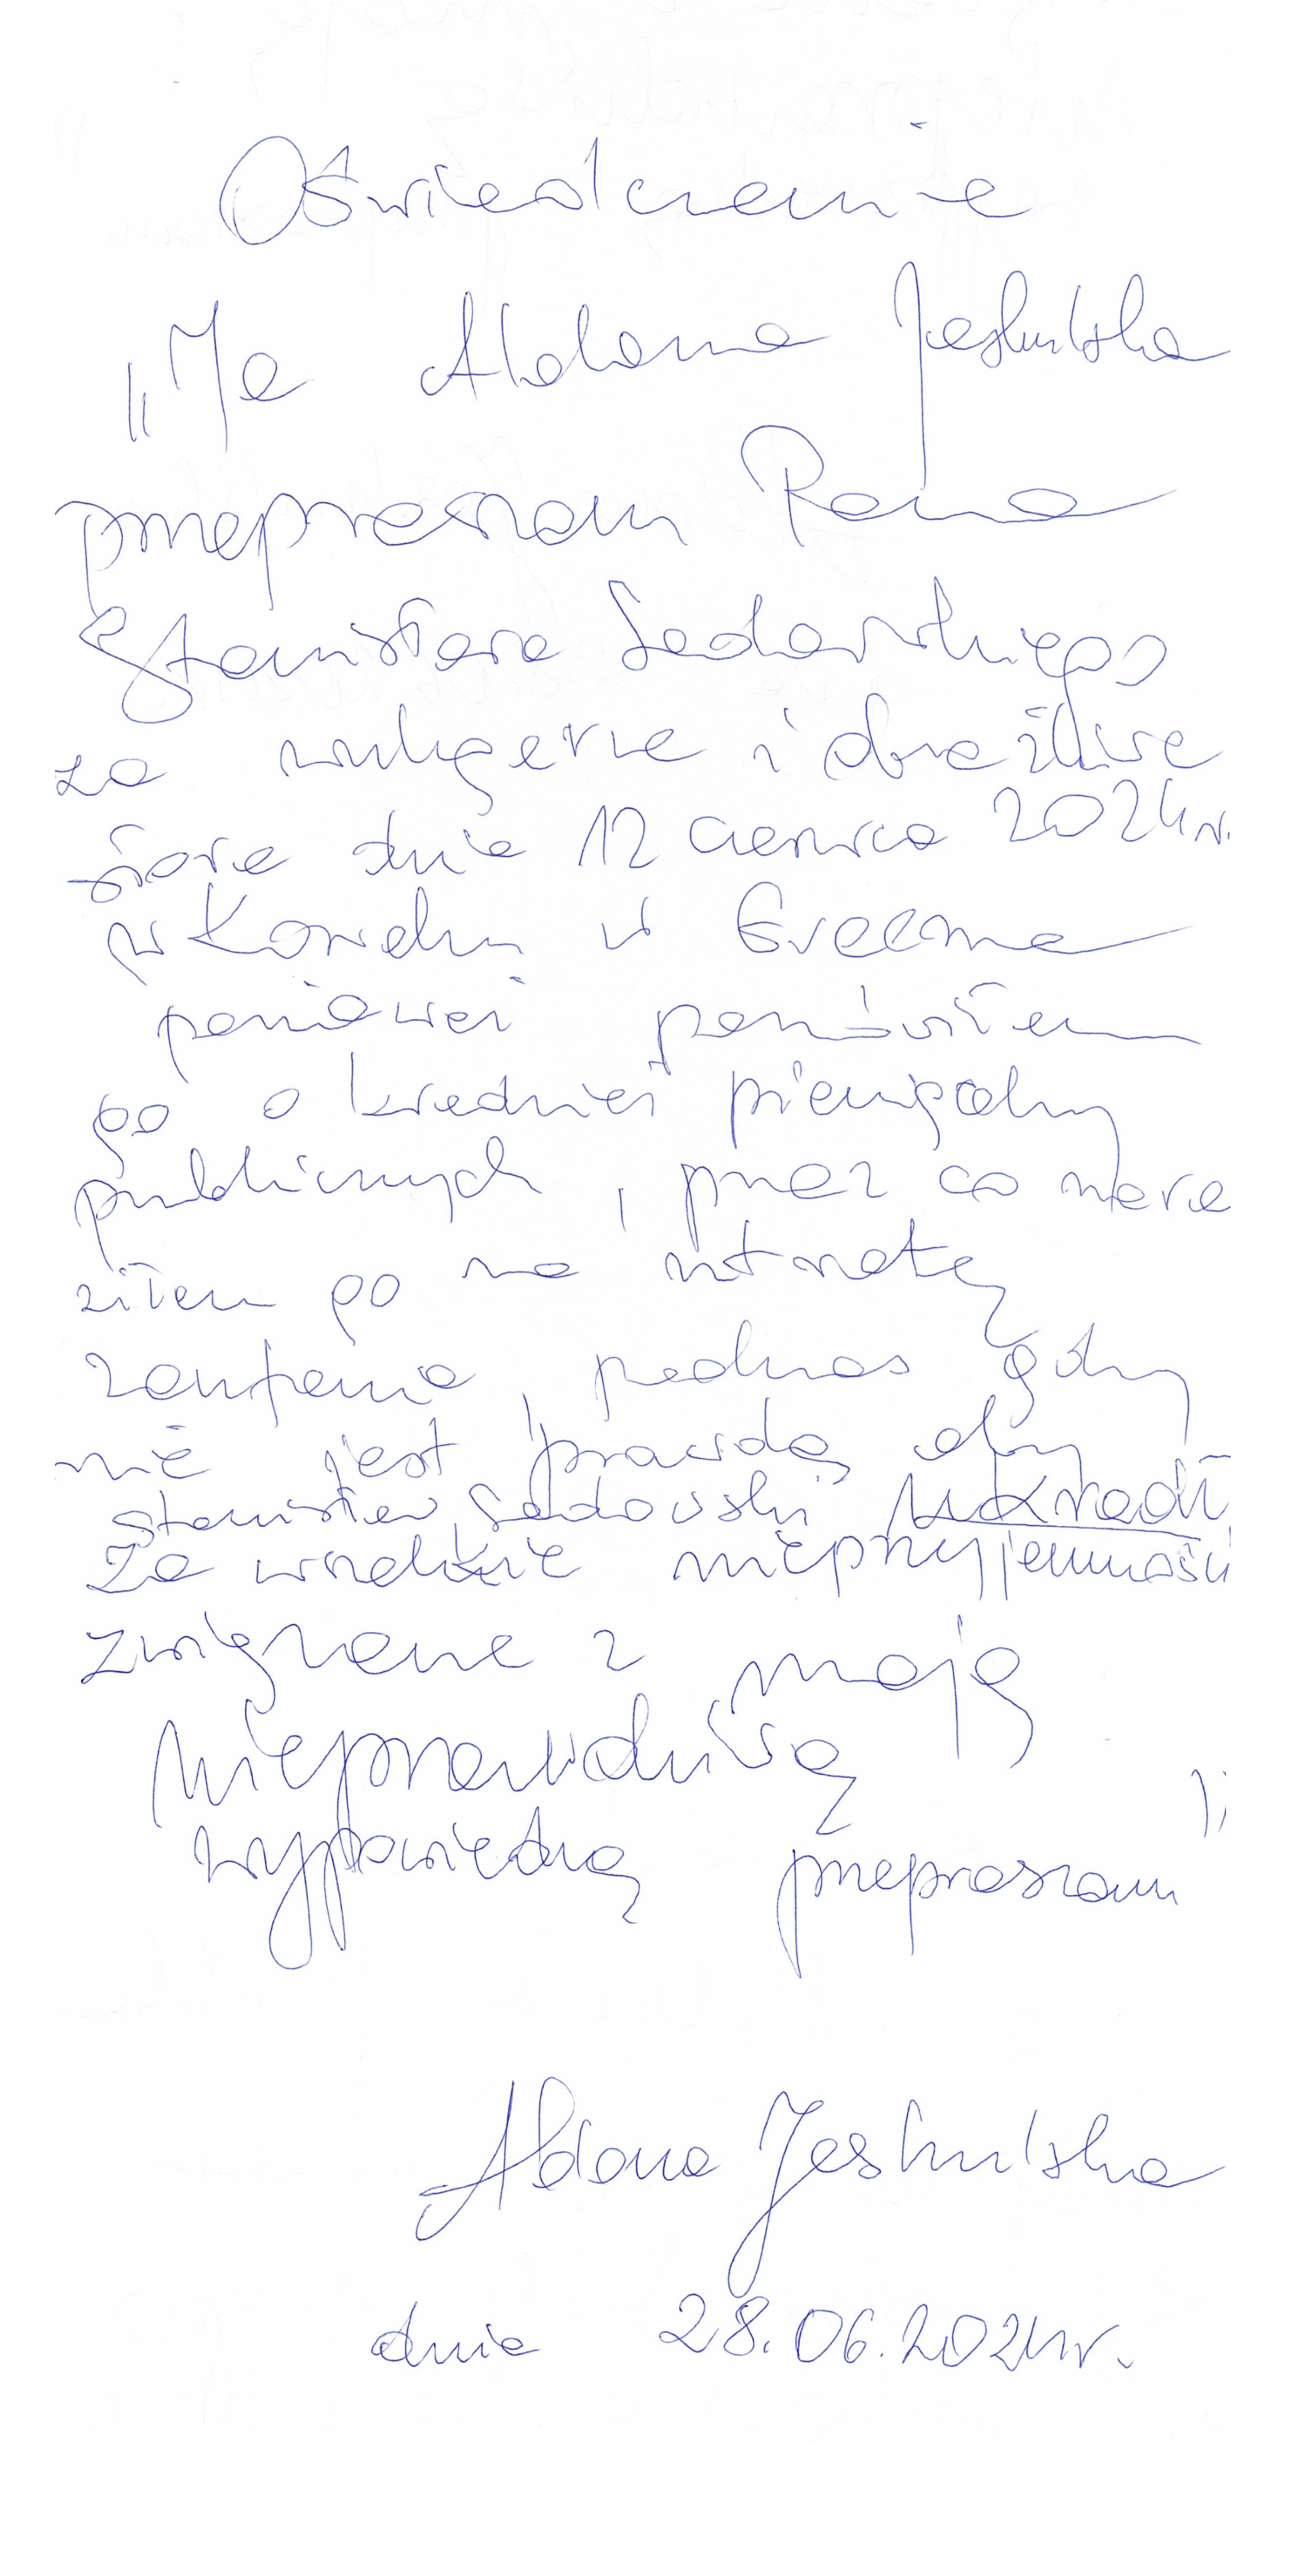 Oświadczenie
„Ja Aldona Jeshulska
przepraszam Pana
Stanisława Sadowskiego
za wulgarne i obraźliwe
słowa dnia 12 czerwca 2024 r.
w Kowalu w
ponieważ pomówiłem
go o kradzież pieniędzy
publicznych, przez co nara
ziłem go na utratę
zaufania, podczas gdy
nie jest prawdą aby
Stanisław Sadowski ukradł.
Za wszelkie nieprzyjemności
związane z moją
nieprawdziwą
wypowiedzią przepraszam"
Aldona Jeshulska
dnia 28.06.2024r.